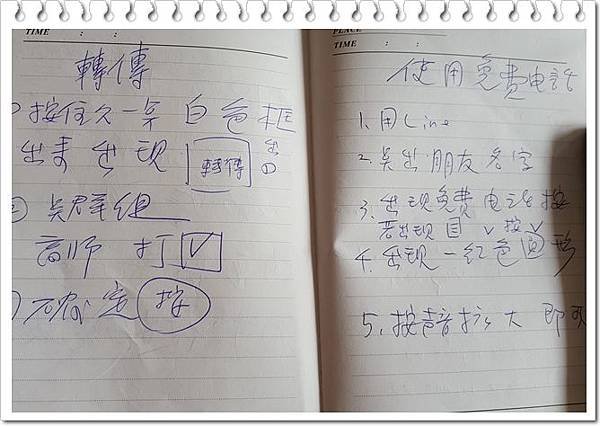 TIME : :
轉傳
按住久一點 白色框
出來 出現 轉傳 出
② 點群組
高師 打 ✓
確定 按
PLACE
TIME : :
使用免費电话
1. 用Line
2. 点出朋友名字
3. 出现免費电话按
若出现 ✓ 按 ✓
4. 出现一红色圆形
5. 按声音扩大 即可